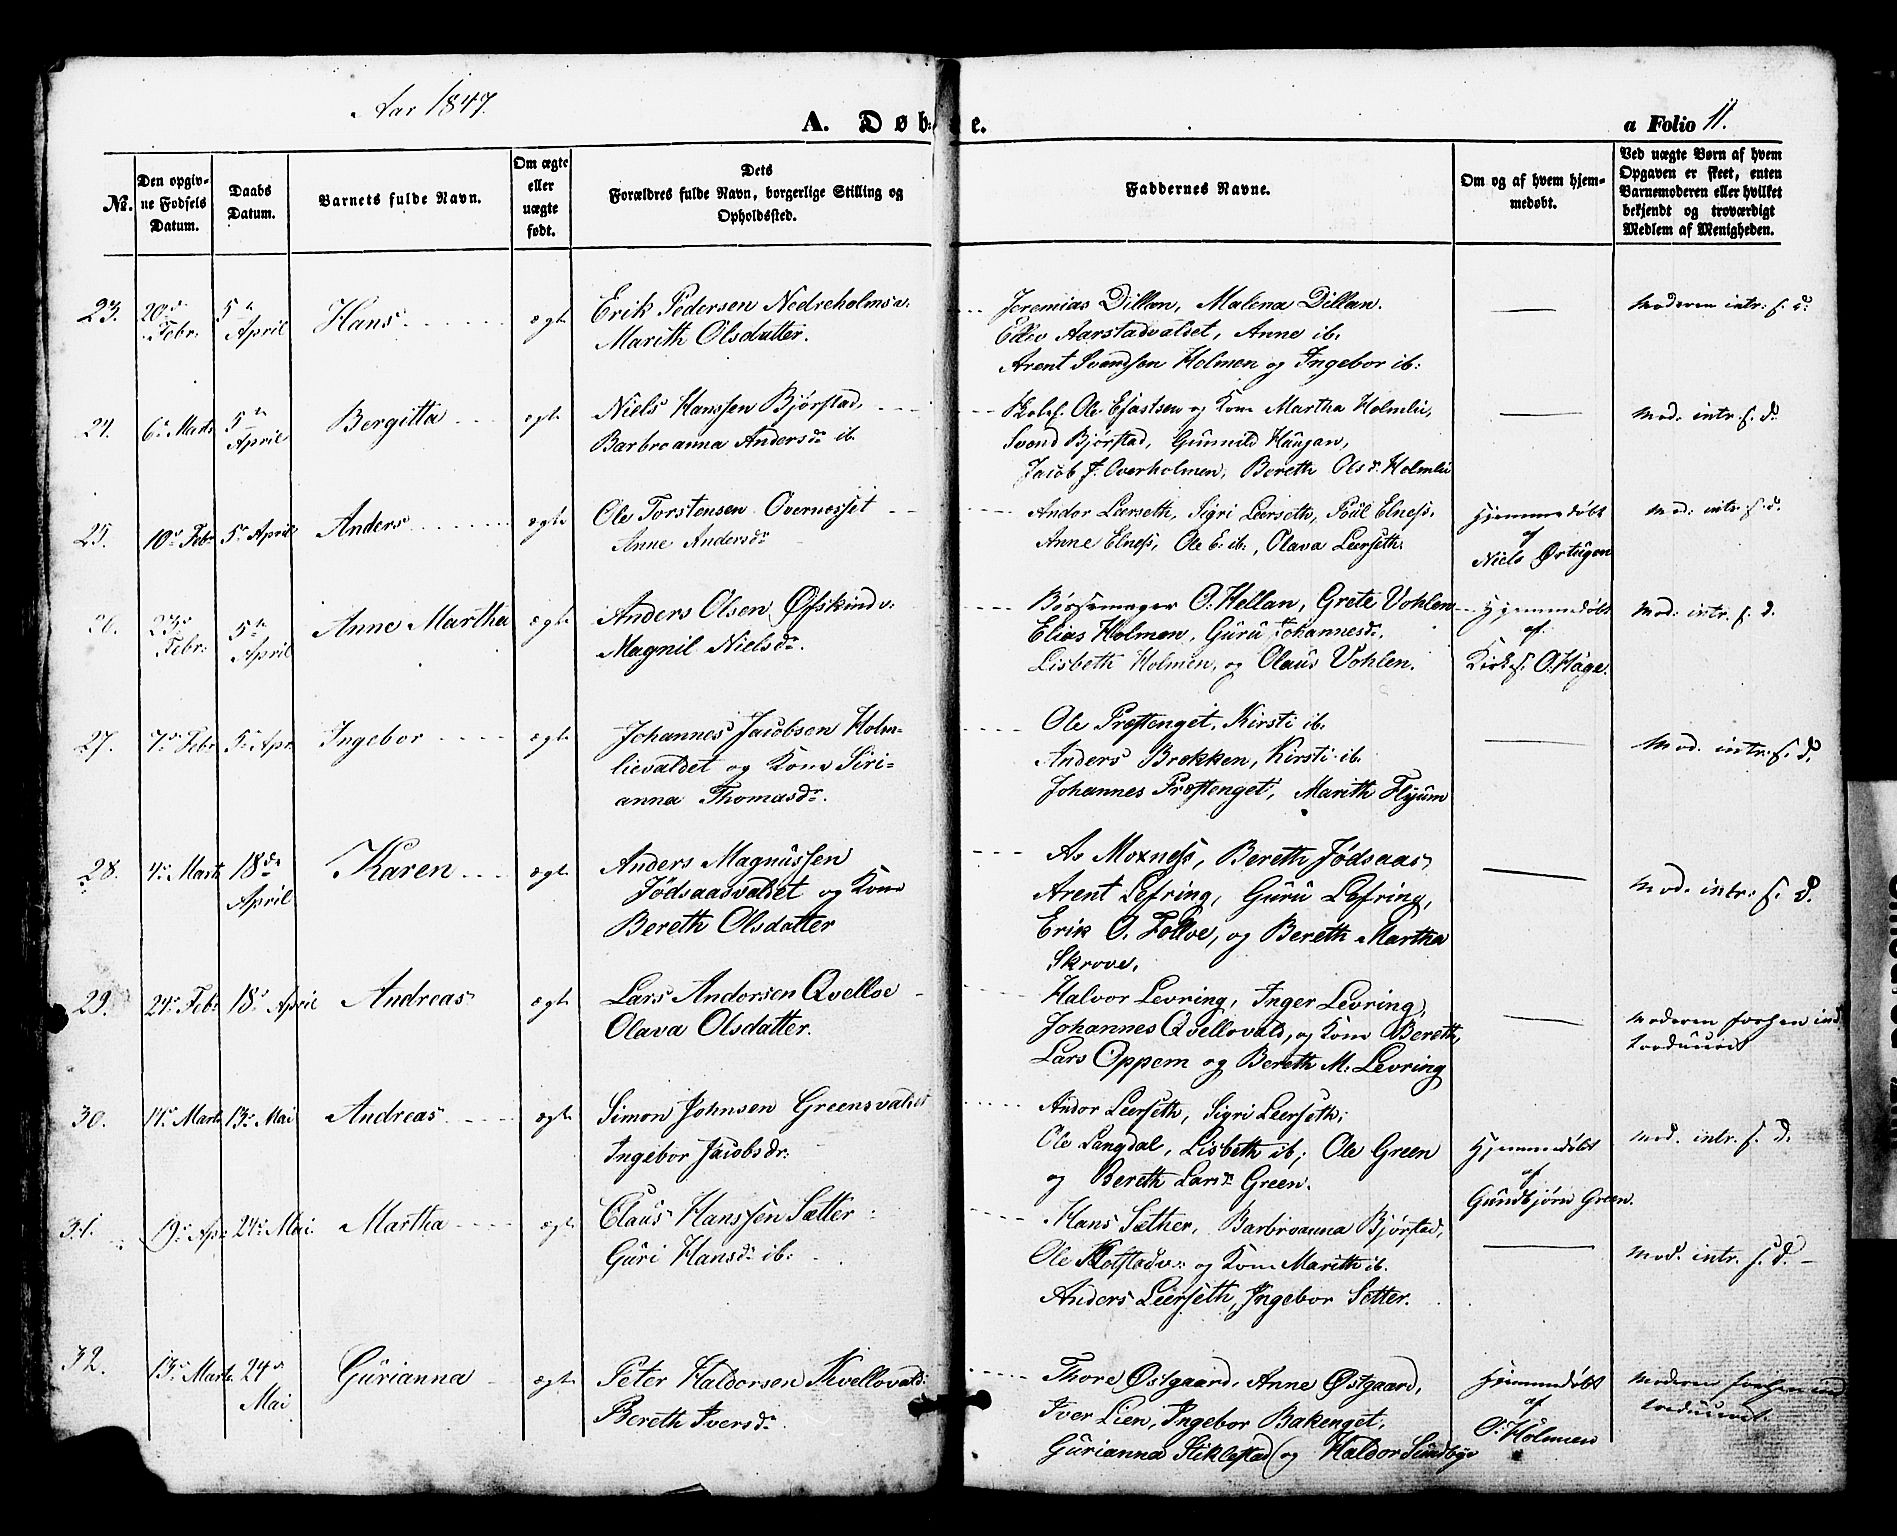 Aar 1847.
A. Døbte.
a Folio 11.
No.
Den opgiv-
ne Fødsels
Datum.
Daabs
Datum.
Barnets fulde Navn.
Om ægte
eller
uægte
født.
Dets
Forældres fulde Navn, borgerlige Stilling og
Opholdssted.
Faddernes Navne.
Om og af hvem hjem-
medøbt.
Ved uægte Børn af hvem
Opgaven er skeet, enten
Barnemoderen eller hvilket
bekjendt og troværdigt
Medlem af Menigheden.
23. 20de Febr. 5te April Hans ægte
Erik Pedersen Nedreholmsv:
Marith Olsdatter.
Jeremias Dillan, Malena Dillan.
Aarstadvaldet, Anne ib.
Arent Svendsen Holmen og Ingebor ib:
Moderen intr: s. d:
24. 6te Marts 5te April Bergitta ægte
Niels Hanssen Bjørstad,
Barbroanna Andersdr ib.
Ole og Kone Martha Holmlii,
Svend Bjørstad, Gunnild Haugan,
Jacob J. Overholmen, Bereth Olsdr Holmlii
Mod: intr. s. d.
25. 10de Febr 5te April Anders ægte
Ole Torstensen Overnesset
Anne Andersdr
Andor Leerseth, Sigri Leerseth, Poül Elness,
Anne Elness, Ole E. ib., Olava Leerseth.
Hjemmedøbt
af
Niels Østugen
Mod: intr. s. d.
26. 23de Febr: 5te April Anne Martha ægte
Anders Olsen Øfskindv:
Magnil Nielsdr.
Børsemager O. Hellan, Grete Vohlen
Elias Holmen, Gürü Johannesdr.
Lisbeth Holmen, og Olaus Vohlen.
Hjemmedøbt
af
Kirkes. O. Hage.
Mod: intr: s. d.
27. 7de Febr 5te Apr Ingebor ægte
Johannes Jacobsen Holm-
lievaldet og Kone Siri-
anna Thomasdr.
Ole Præstenget, Kirsti ib.
Anders Brekken, Kirsti ib.
Johannes Præstenget, Marith Flyüm
Mod. intr: s. d.
28. 4de Marts 18de April Karen ægte
Anders Magnüssen
Jødsaasvaldet og Kone
Bereth Olsdatter
As Moxness, Bereth Jødsaas,
Arent Lefring, Gürü Lefring,
Erik O. Tollve, og Bereth Martha
Skrove.
Mod. intr: s. d.
29. 24de Febr 18de April Andreas ægte
Lars Andersen Qvelloe
Olava Olsdatter.
Halvor Levring, Inger Levring,
Johannes Qvellovald, og Kone Bereth,
Lars Oppem og Bereth M. Levring
Moderen forhen in-
troduceret
30. 14de Marts 13de Mai Andreas ægte
Simon Johnsen Greensvaldet
Ingebor Jacobsdr:
Andor Leerseth, Sigri Leerseth;
Ole Langdal, Lisbeth ib; Ole Green
og Bereth Larsdr Green.
Hjemmedøbt
af
Gundbjørn Green.
Mod. intr. s. d.
31. 19de Apr 24de Mai. Martha ægte
Claus Hanssen Sætter
Güri Hansdr ib:
Hans Sæther, Barbroanna Bjørstad,
Ole og Kone Marith ib.
Anders Leerseth, Ingebor Setter.
Mod. intr. s. d.
32. 13de Marts. 24de Mai Gürianna ægte
Peter Haldorsen Kvellovald:
Bereth Iversdr.
Thore Østgaard, Anne Østgaard,
Iver Lien, Ingebor Bakenget,
Gürianna Stiklestad og Haldor Sundbye
Hjemmedøbt
af
O. Holmen
Moderen forhen in-
troduceret.